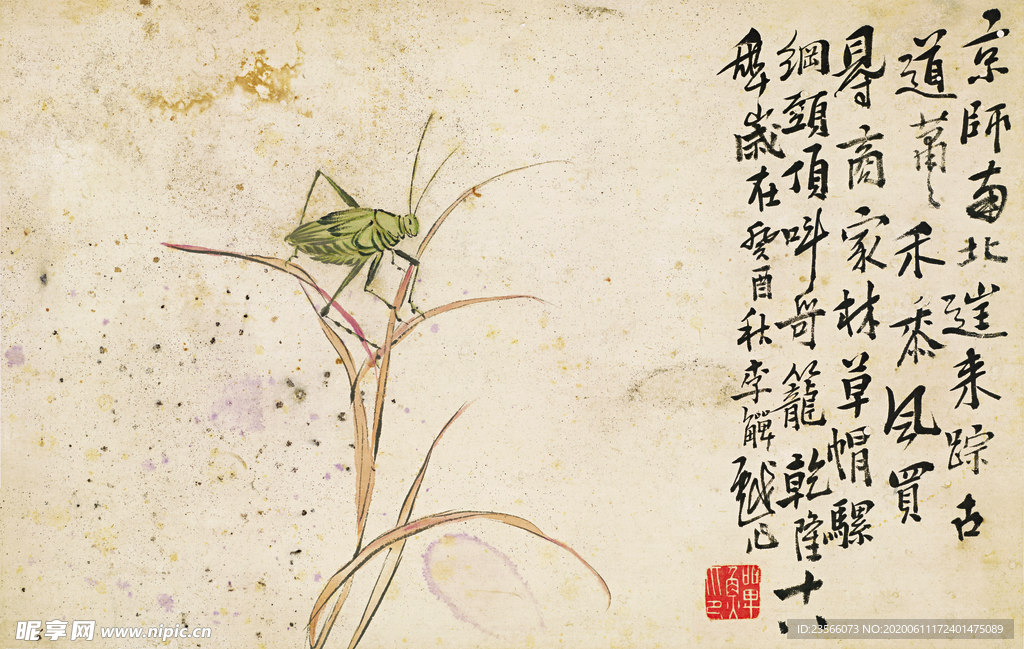 京師南北来踪古
道蕭〻禾黍風買
得商家草帽騾
綱頭頂叫哥籠乾隆十八
年歲在癸酉秋李觶
昵享网 www.nipic.cn
ID:23566073 NO:20200611172401475089